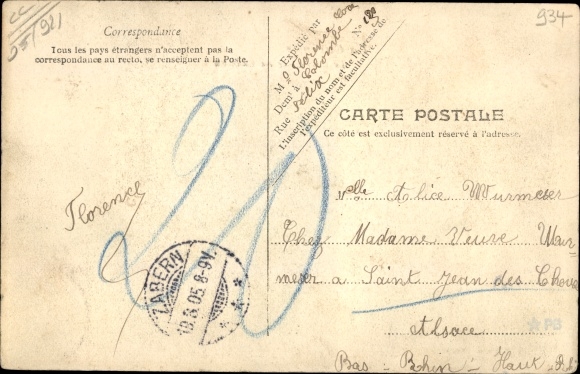 934
Correspondance
Tous les pays étrangers n'acceptent pas la
correspondance au recto, se renseigner à la Poste.
Expédié par
M Florence
Dem<sup>t</sup> à Colombe
Rue Félix N°
L'inscription du nom et de l'adresse de
l'expéditeur est facultative.
CARTE POSTALE
Ce côté est exclusivement réservé à l'adresse.
Florence
20
ZABERN
19.8.05.8-9V.
Mlle Alice Wurmeser
Chez Madame Veuve Wur
meser a Saint Jean des Choux
Alsace
Bas-Rhin - Haut-